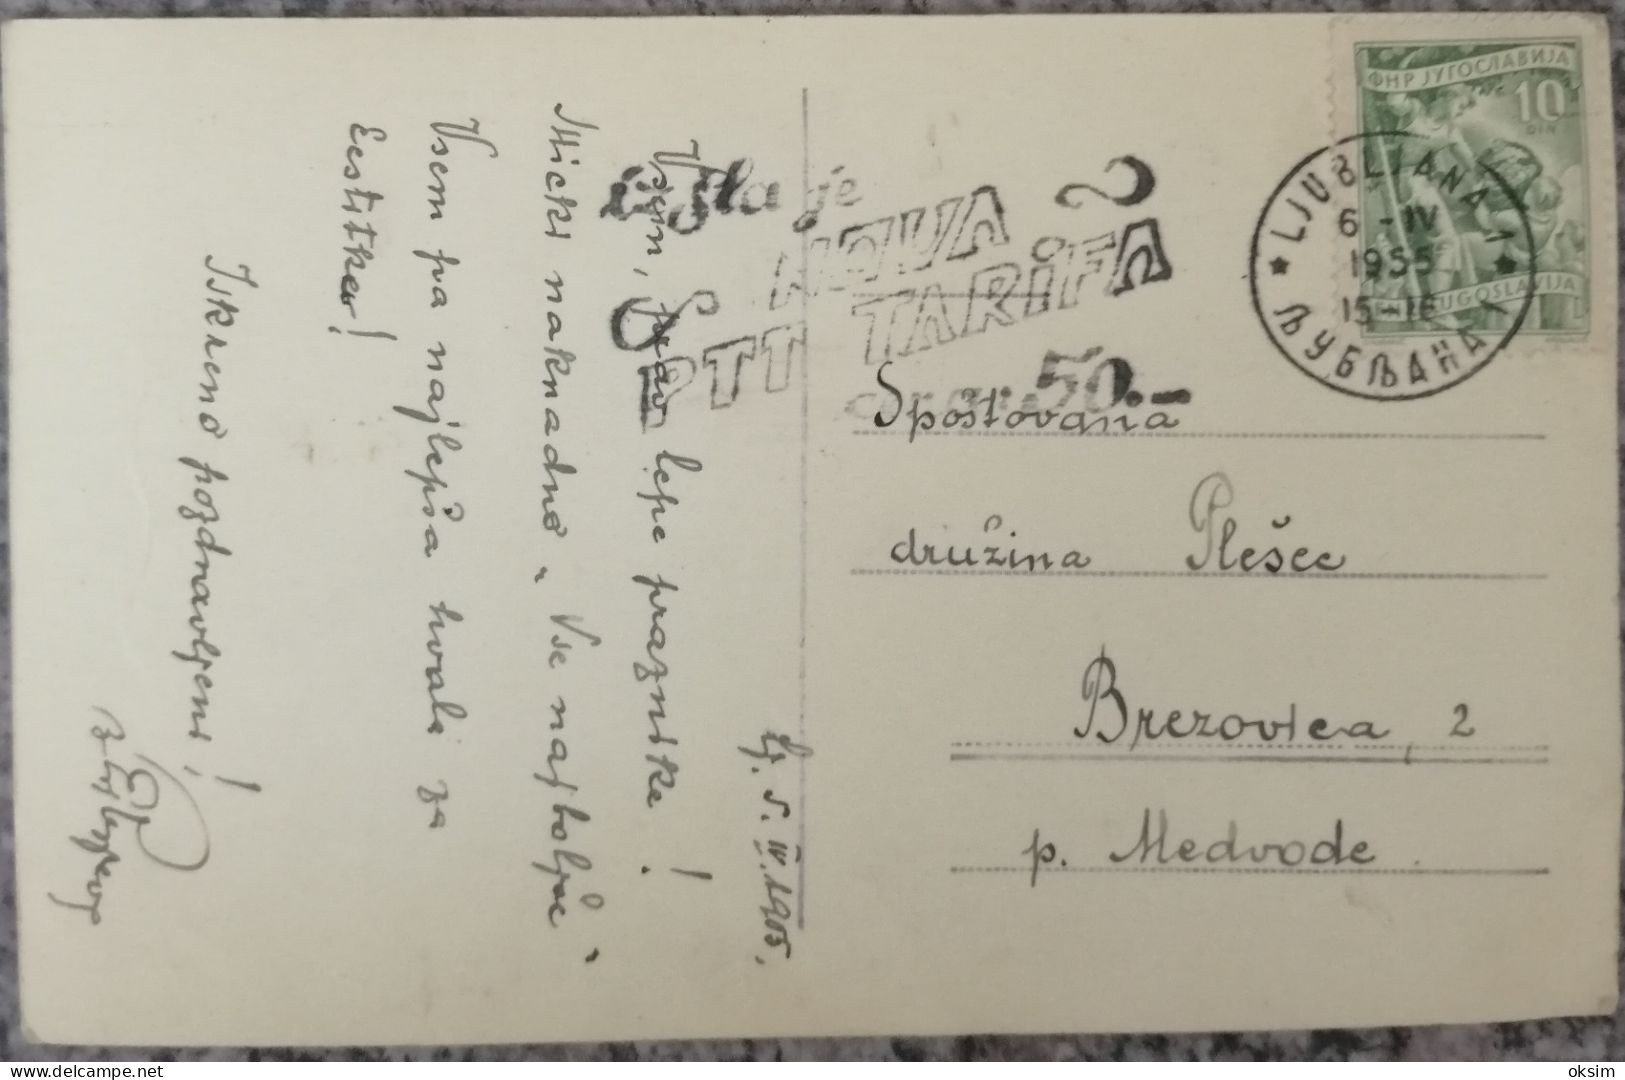 ФНР ЈУГОСЛАВИЈА
10
DIN
FNR JUGOSLAVIJA
LJUBLJANA 1
6 -IV
1955
15-16
ЉУБЉАНА 1
Izšla je
NOVA
PTT TARIFA
50.-
Lj. 5. IV. 1955.
Vsem, prav lepe praznike!
Micki naknadno „Vse najboljše“.
Vsem pa najlepša hvala za
čestitke!
Iskreno pozdravljeni!
Spoštovana
družina Plešec
Brezovica, 2
p. Medvode.
oksim